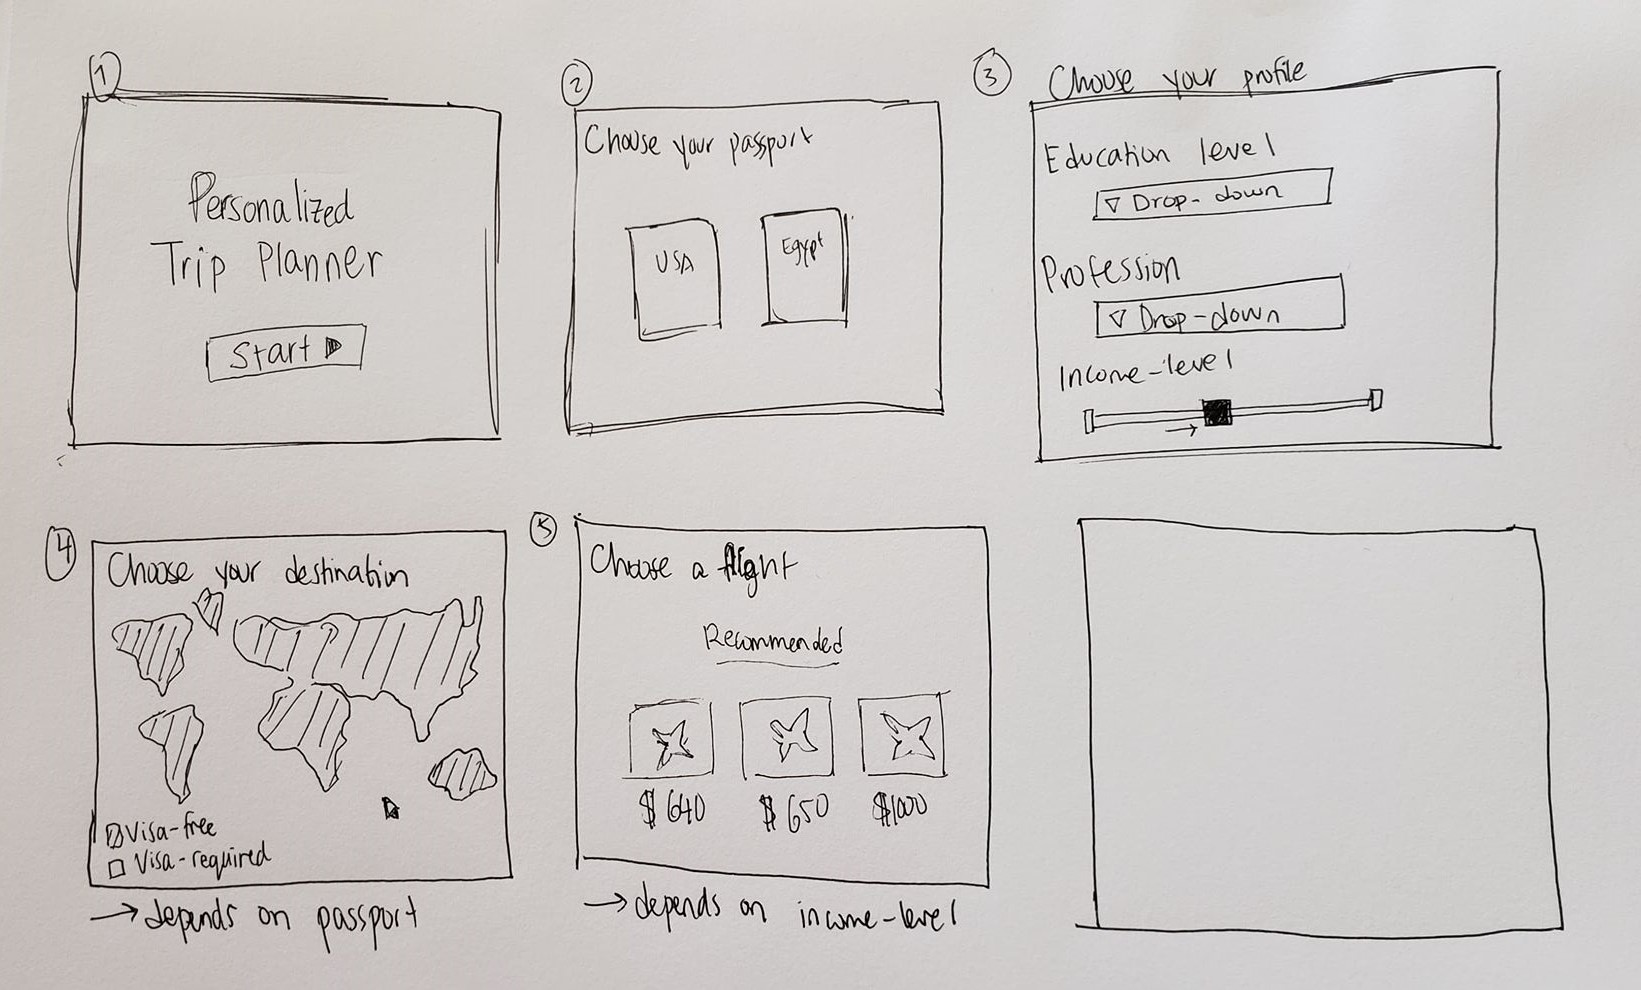 1
Personalized
Trip Planner
Start
2
Choose your passport
USA
Egypt
3
Choose your profile
Education level
Drop-down
Profession
Drop-down
Income-level
4
Choose your destination
Visa-free
Visa-required
→ depends on passport
5
Choose a flight
Recommended
$640
$650
$1000
→ depends on income-level